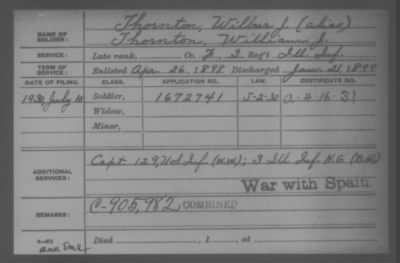 NAME OF SOLDIER: Thornton, Wilbur J. (alias)
Thornton, William J.
SERVICE: Late rank, Co. F, 3 Reg't Ill. Inf.
TERM OF SERVICE: Enlisted Apr. 26, 1898 Discharged Jan. 21, 1899
DATE OF FILING. CLASS. APPLICATION NO. LAW. CERTIFICATE NO.
1930, July 10 Soldier, 1672741 J-2-30 a-4-16-31
Widow,
Minor,
ADDITIONAL SERVICES: Capt 129, U.S. Inf. (W.W.); 3 Ill. Inf. N.G.
War with Spain.
REMARKS: C-905,982 COMBINED
Died , 1 , at